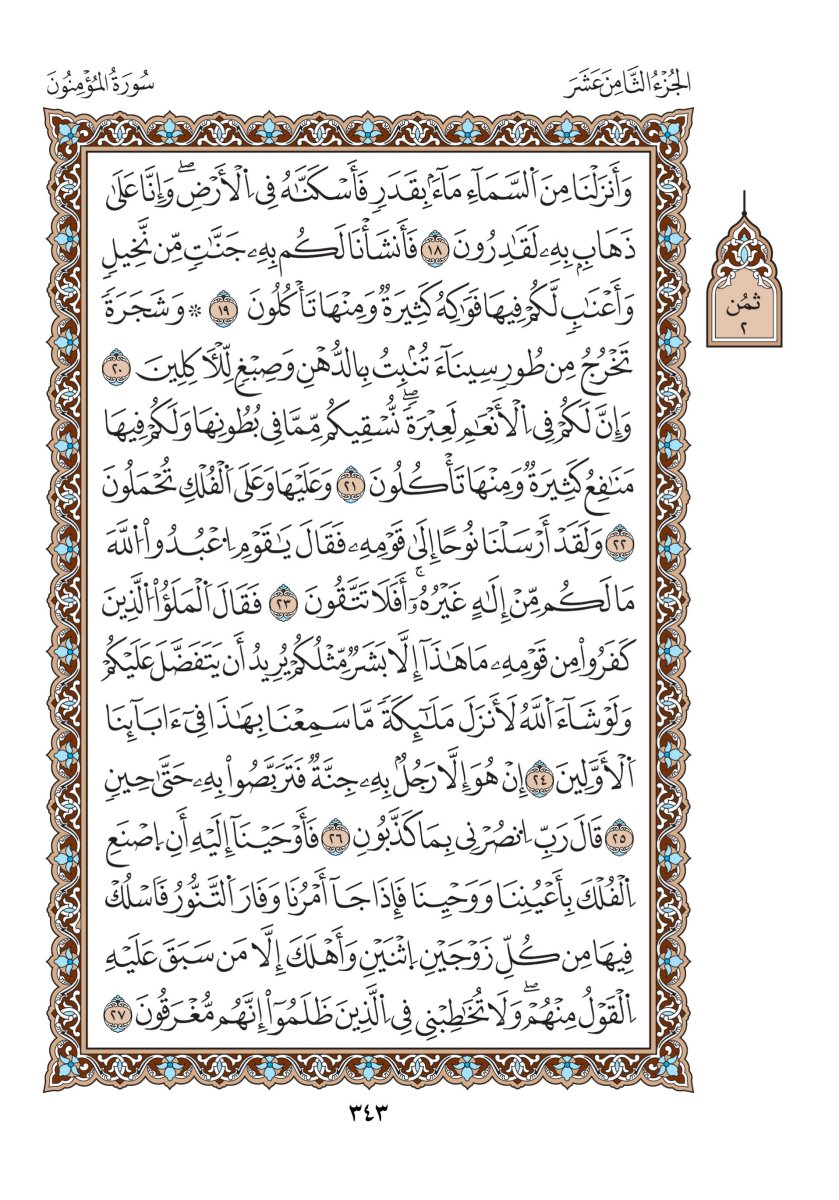 الجُزْءُ الثَّامِنَ عَشَرَ
سُورَةُ المُؤْمِنُونَ
وَأَنزَلْنَا مِنَ اَ۬لسَّمَآءِ مَآءَۢ بِقَدَرٖ فَأَسْكَنَّٰهُ فِي اِ۬لْأَرْضِۖ وَإِنَّا عَلَىٰ
ذَهَابِۭ بِهِۦ لَقَٰدِرُونَ ١٨ فَأَنشَأْنَا لَكُم بِهِۦ جَنَّٰتٖ مِّن نَّخِيلٖ
وَأَعْنَٰبٖ لَّكُمْ فِيهَا فَوَٰكِهُ كَثِيرَةٞ وَمِنْهَا تَأْكُلُونَ ١٩ ۞ وَشَجَرَةٗ
تَخْرُجُ مِن طُورِ سِينَآءَ تُنۢبِتُ بِالدُّهْنِ وَصِبْغٖ لِّلْأٓكِلِينَ ٢٠
وَإِنَّ لَكُمْ فِي اِ۬لْأَنْعَٰمِ لَعِبْرَةٗۖ نُّسْقِيكُم مِّمَّا فِي بُطُونِهَا وَلَكُمْ فِيهَا
مَنَٰفِعُ كَثِيرَةٞ وَمِنْهَا تَأْكُلُونَ ٢١ وَعَلَيْهَا وَعَلَى اَ۬لْفُلْكِ تُحْمَلُونَ
٢٢ وَلَقَدْ أَرْسَلْنَا نُوحًا إِلَىٰ قَوْمِهِۦ فَقَالَ يَٰقَوْمِ اِ۟عْبُدُواْ اُ۬للَّهَ
مَا لَكُم مِّنْ إِلَٰهٍ غَيْرُهُۥٓۚ أَفَلَا تَتَّقُونَ ٢٣ فَقَالَ اَ۬لْمَلَؤُاْ اُ۬لَّذِينَ
كَفَرُواْ مِن قَوْمِهِۦ مَا هَٰذَآ إِلَّا بَشَرٞ مِّثْلُكُمْ يُرِيدُ أَن يَتَفَضَّلَ عَلَيْكُمْ
وَلَوْ شَآءَ اَ۬للَّهُ لَأَنزَلَ مَلَٰٓئِكَةٗ مَّا سَمِعْنَا بِهَٰذَا فِيٓ ءَابَآئِنَا
اَ۬لْأَوَّلِينَ ٢٤ إِنْ هُوَ إِلَّا رَجُلُۢ بِهِۦ جِنَّةٞ فَتَرَبَّصُواْ بِهِۦ حَتَّىٰ حِينٖ
٢٥ قَالَ رَبِّ اِ۟نصُرْنِي بِمَا كَذَّبُونِ ٢٦ فَأَوْحَيْنَآ إِلَيْهِ أَنِ اِ۪صْنَعِ
اِ۬لْفُلْكَ بِأَعْيُنِنَا وَوَحْيِنَا فَإِذَا جَآ أَمْرُنَا وَفَارَ اَ۬لتَّنُّورُ فَاسْلُكْ
فِيهَا مِن كُلِّ زَوْجَيْنِ اِ۪ثْنَيْنِ وَأَهْلَكَ إِلَّا مَن سَبَقَ عَلَيْهِ
اِ۬لْقَوْلُ مِنْهُمْۖ وَلَا تُخَٰطِبْنِي فِي اِ۬لَّذِينَ ظَلَمُوٓاْ إِنَّهُم مُّغْرَقُونَ ٢٧
ثُمُن
٢
٣٤٣